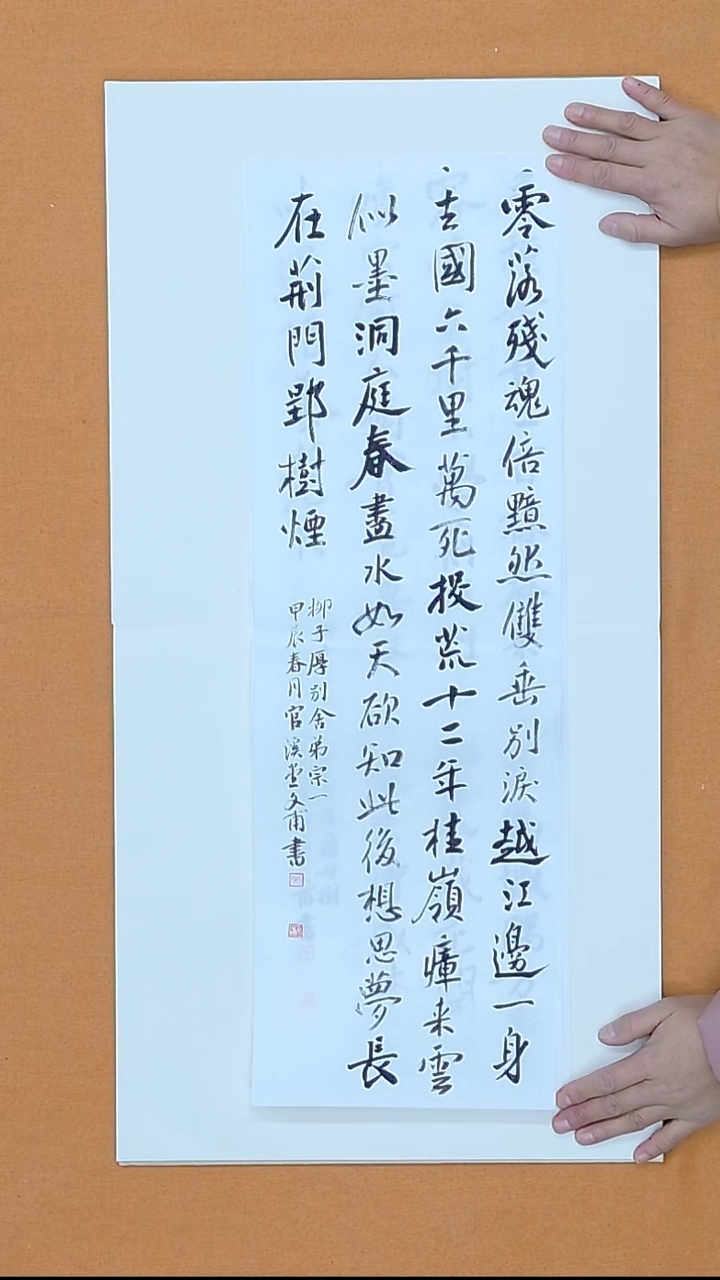 零落殘魂倍黯然雙垂別淚越江邊一身
去國六千里萬死投荒十二年桂嶺瘴来雲
似墨洞庭春盡水如天欲知此後想思夢長
在荊門郢樹煙
柳子厚別舍弟宗一
甲辰春月官溪堂文甫書